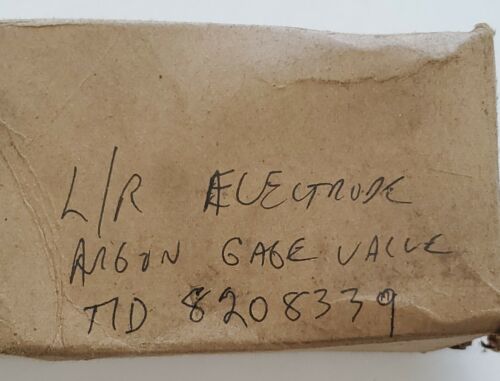 L/R ELECTRODE
ARGON GAGE VALVE
TID 8208339